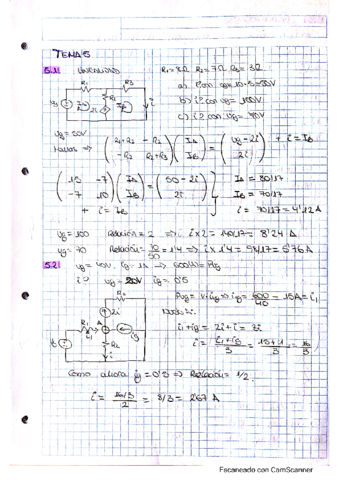 TEMA 5
5.1. Linealidad R1=8Ω R2=7Ω R3=3Ω
R1 R3
a) i con vg=50V
b) i con vg=100V
c) i con vg=70V
vg=50V
Mallas => (R1+R2 -R2 / -R2 R2+R3)(IA / IB) = (vg-2i / 2i) + i=IB
(15 -7 / -7 10)(IA / IB) = (50-2i / 2i) IA = 80/17
IB = 70/17
+ i=IB i = 70/17=4'12A
vg=100 Relación=2 => i×2=140/17=8'24A
vg=70 Relación=70/50=1'4 => i×1'4=98/17=5'76A
5.2. vg=40V, ig=1A -> 600W=Pvg
i? vg=20V ig=0'5
Pvg=v·ig => ig=600/40=15A=i1
Nudo A:
i1+ig=2i+i=3i
i=(i1+ig)/3=(15+1)/3=16/3
Como ahora ig=0'5 => Relación=1/2
i=(16/3)/2=8/3=2'67A
Escaneado con CamScanner